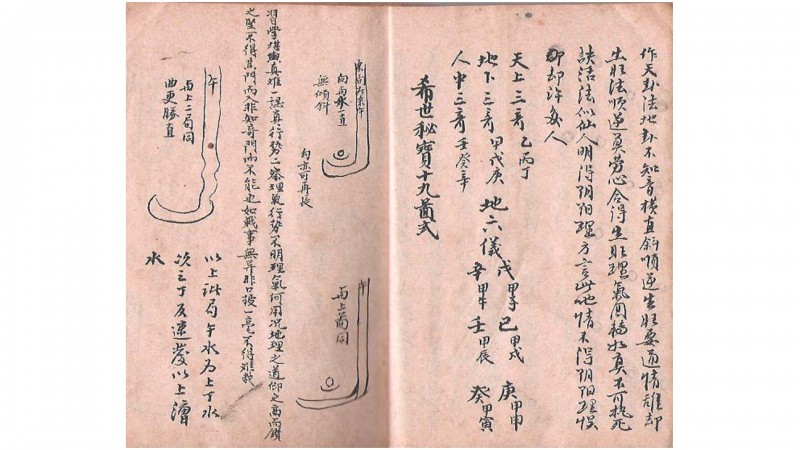 作天卦法地卦不知音橫直斜順逆生旺要通情誰却
生旺法順逆員勞心会得生旺理氣圓稿水真不可執死
訣活法似仙人明得阴阳理方言此地情未得阴阳理悞
却却許多人
天上三奇乙丙丁
地下三奇甲戊庚
人中三奇壬癸辛
地六儀
戊甲子 己甲戌 庚甲申
辛甲午 壬甲辰 癸甲寅
希世秘寶十九啚式
向丙水直
無傾斜
向亦可再長
午
丙上局同
習學堪輿真难一認真行势二察理氣行势不明理氣何用况地理之道仰之高而鑽
之堅不得其門而入非知奇門而不能也如戰事無异非口授一毫不得难教
午
丙上二局同
曲更勝直
以上啚局午水为上丁水
次之丁反速發以上濳
水